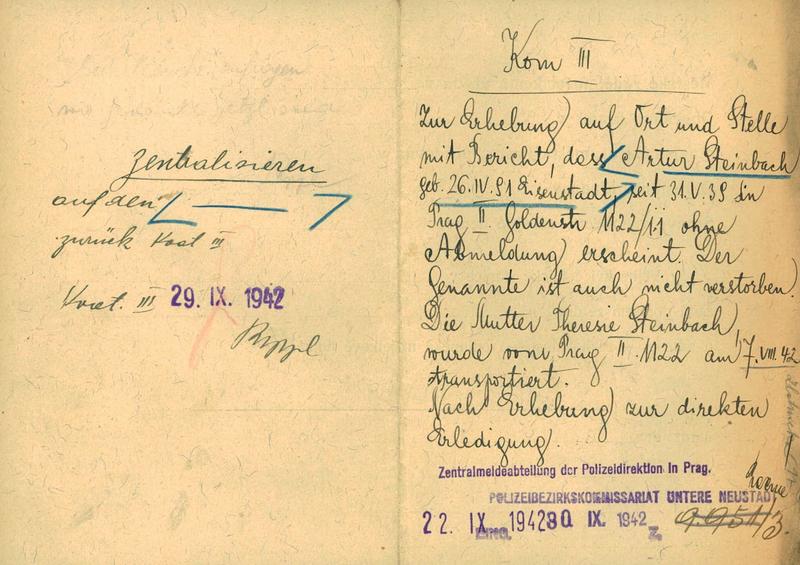 Zentralisieren
auf den
zurück Kom III
III 29. IX. 1942
Kom III
Zur Erhebung auf Ort und Stelle
mit Bericht, dass Artur Steinbach
geb. 26.IV.91 Eisenstadt, seit 31.V.39 in
Prag II. Goldenstr 1122/11 ohne
Abmeldung erscheint. Der
Genannte ist auch nicht verstorben.
Die Mutter Theresie Steinbach,
wurde vom Prag II. 1122 am 7.VIII.42
transportiert.
Nach Erhebung zur direkten
Erledigung.
Zentralmeldeabteilung der Polizeidirektion in Prag.
POLIZEIBEZIRKSKOMMISSARIAT UNTERE NEUSTADT
22. IX. 1942 30. IX. 1942